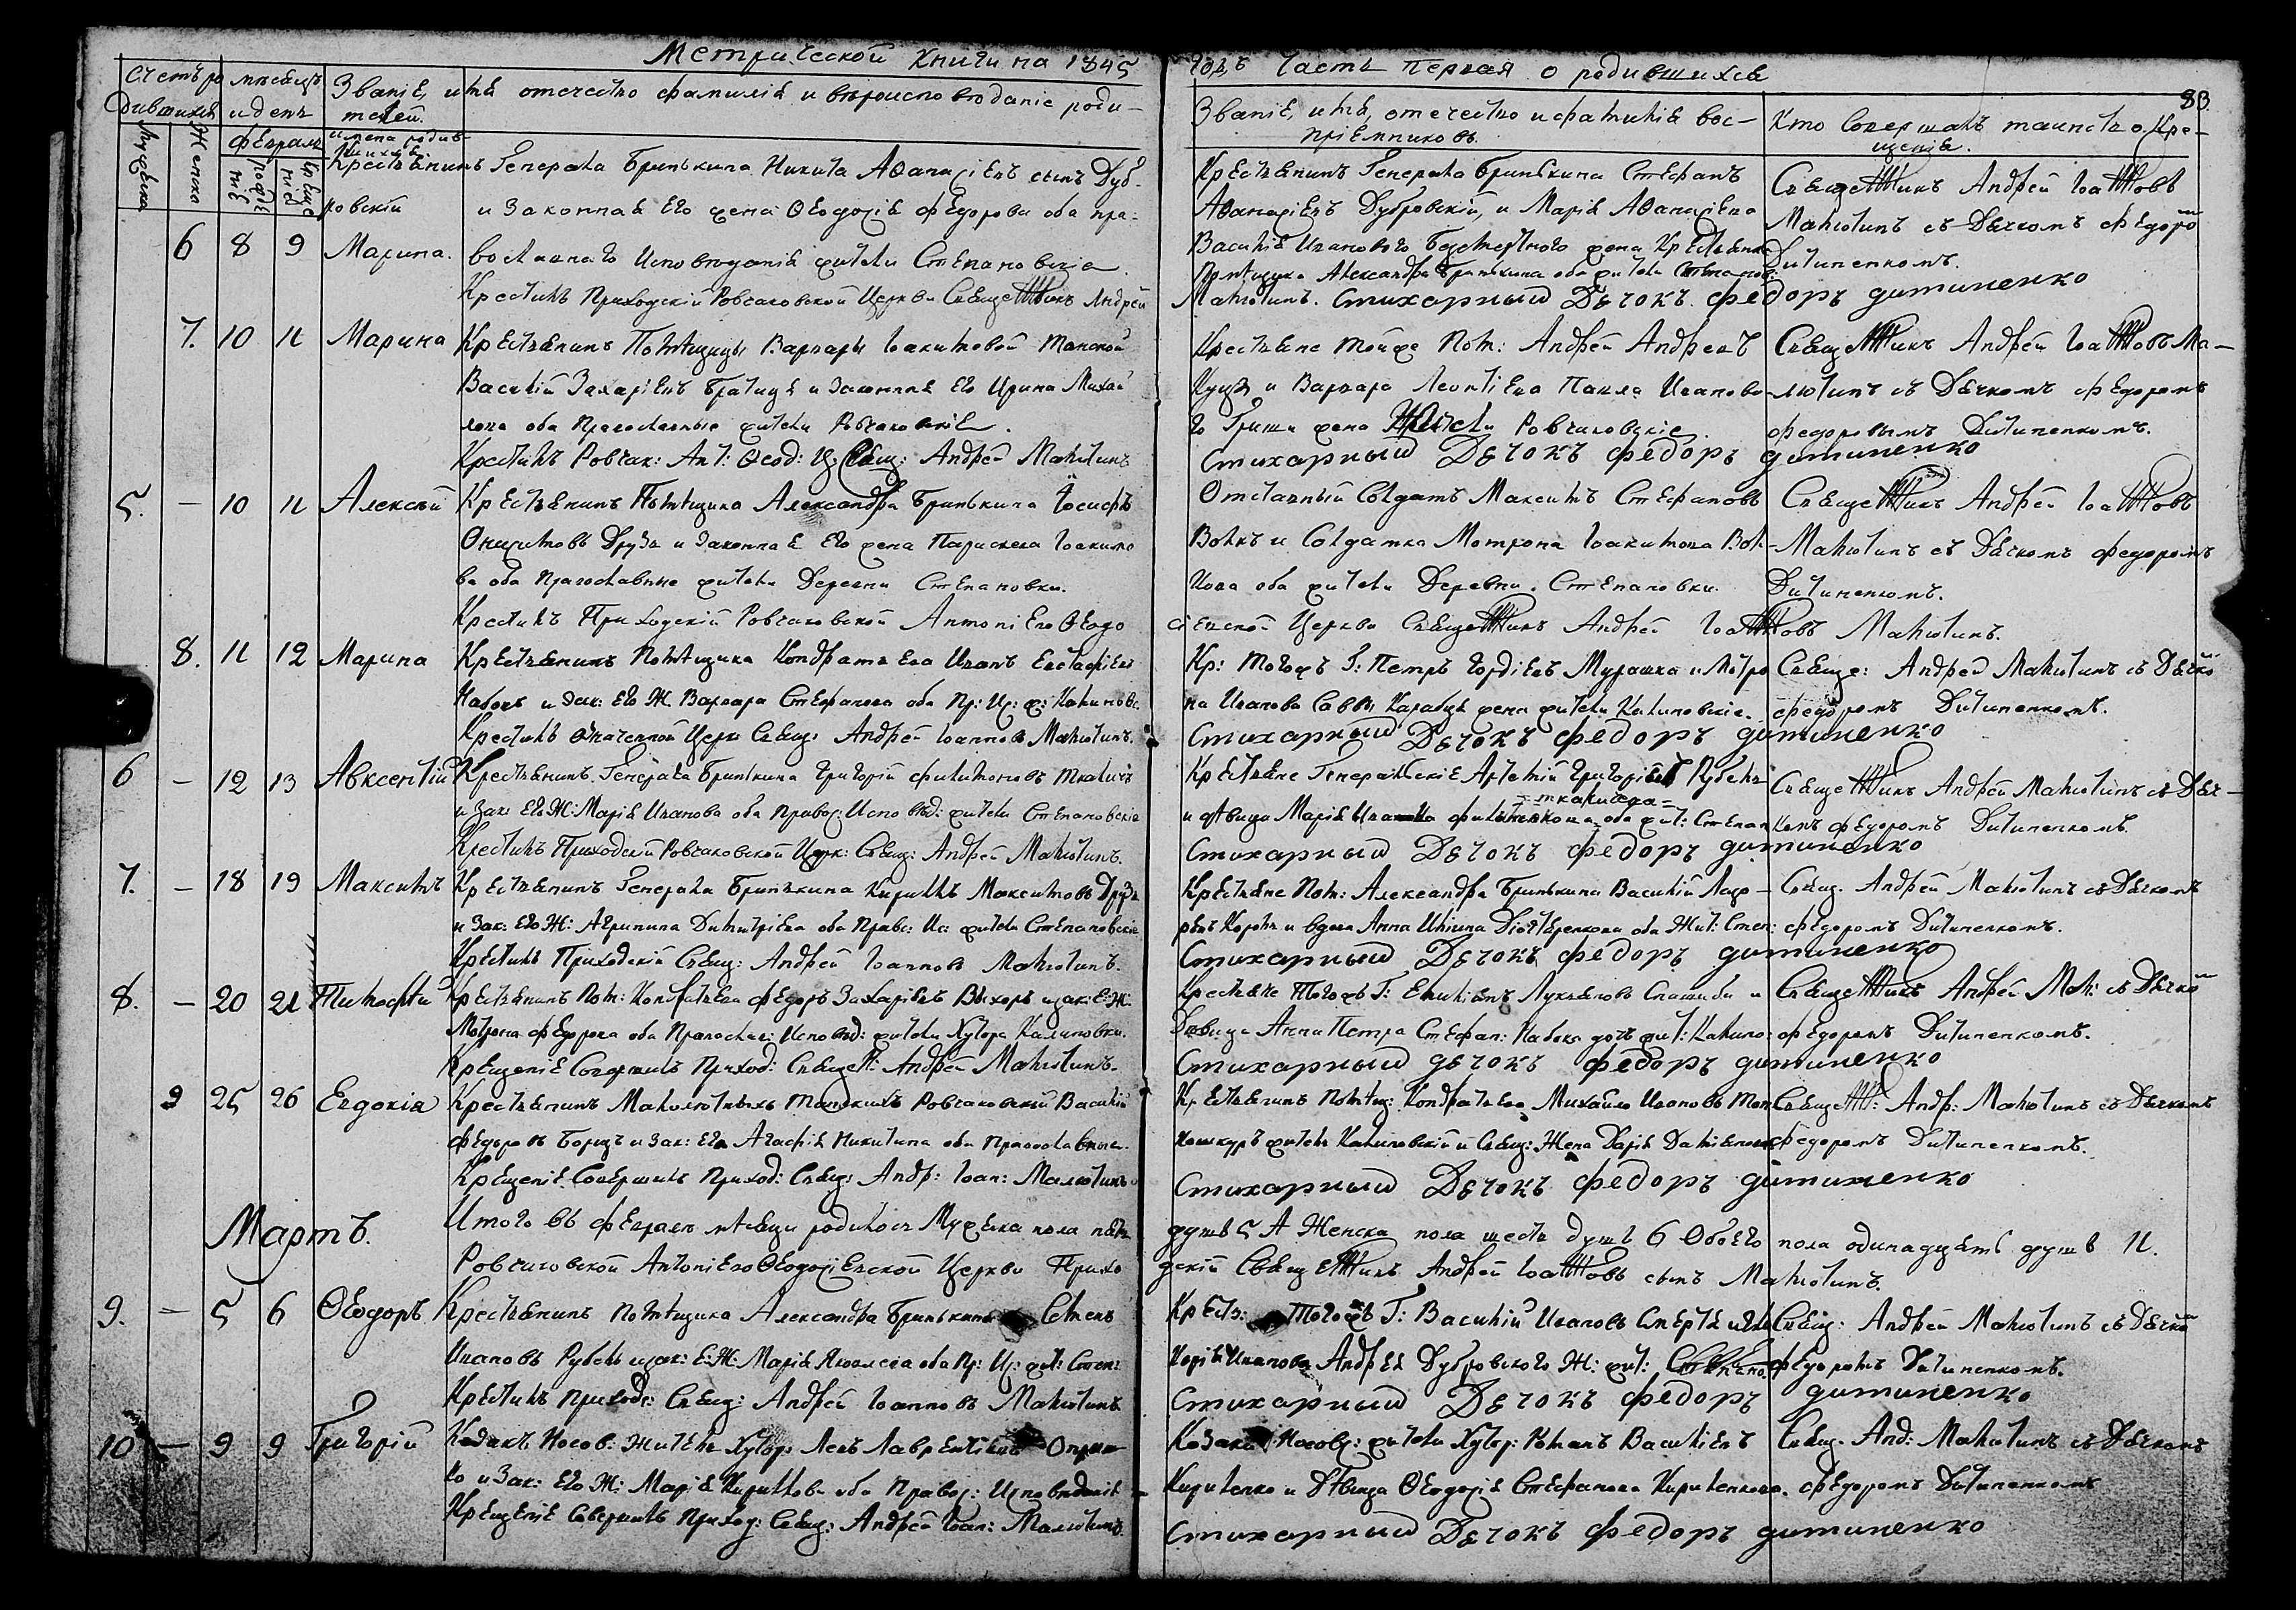 Метрической книги на 1845 годъ часть первая о родившихся
83
Счетъ ро
дившихся
мѣсяцъ
и день
Званіе, имя отечество фамилія и вѣроисповѣданіе роди-
телей.
Званіе, имя, отечество и фамилія вос-
пріемниковъ.
Кто совершалъ таинство Кре-
щенія.
Мужеска
Женска
Февраль
имена родив
шихся
Крестьянинъ Генерала Бринькина Никита Аѳанасіевъ сынъ Дуб-
ровскій и законная его жена Ѳеодосія Федорова оба пра-
6 8 9 Марина. вославнаго исповѣданія жители Степановскіе
Крестилъ Приходскій Ровчаковской Церкви Священникъ Андрей
Крестьянинъ Генерала Бринькина Стефанъ
Аѳанасіевъ Дубровскій, и Марія Аѳанасіева
Василія Ивановаго Безсмертного жена Крестьянка
Помѣщика Александра Бринькина оба жители
Малютинъ. Стихарный Дячокъ федоръ дитиненко
Священникъ Андрей Іоанновъ
Малютинъ съ Дячкомъ Федоро
Дитиненкомъ.
7. 10 11 Марина Крестьянинъ Помѣщицы Варвары Іоакимовой Танской
Василій Захаріевъ Братица и законная его Ирина Михай
лова оба Православные жители Ровчаковскіе.
Крестилъ Ровчак: Ант: Ѳеод: Ц: Свящ: Андрей Малютинъ
Крестьяне тойже Пом: Андрей Андреевъ
Куцъ и Варвара Леонтіева Павла Иваново
го Гриши жена Жители Ровчаковскіе
Стихарный Дячокъ федоръ дитиненко
Священникъ Андрей Іоанновъ Ма-
лютинъ съ Дячкомъ Федоромъ
Федоровымъ Дитиненкомъ.
5. - 10 11 Алексѣй Крестьянинъ Помѣщика Александра Бринькина Іосифъ
Онисимовъ Друзь и законная его жена Параскева Іоакимо
ва оба православные жители Деревни Степановки.
Крестилъ Приходскій Ровчаковской Антоніево Ѳеодо
Отставный Солдатъ Максимъ Стефановъ
Волкъ и Солдатка Мотрона Іоакимова Вол-
кова оба жители Деревни Степановки.
сіевской Церкви Священникъ Андрей Іоанновъ Малютинъ.
Священникъ Андрей Іоанновъ
Малютинъ съ Дячкомъ Федоромъ
Дитиненкомъ.
8. 11 12 Марина Крестьянинъ Помѣщика Кондратьева Иванъ Евстафіевъ
Набокъ и зак: его Ж: Варвара Стефанова оба Пр: Ис: ж: Калиновс.
Крестилъ Означенной Церк Свящ: Андрей Іоанновъ Малютинъ.
Кр: тогожъ Г: Петръ Гордіевъ Мурашка и Мотро
на Иванова Саввы Карабця жена жители Калиновскіе.
Стихарный Дячокъ федоръ дитиненко
Свяще: Андрей Малютинъ съ Дячко
Федоромъ Дитиненкомъ.
6 - 12 13 Авксентій Крестьянинъ Генерала Бринькина Григорій Филимоновъ Ткаличъ
и Зак: его Ж: Марія Иванова оба Правос: Исповѣд: жители Степановскіе
Крестилъ Приходскій Ровчаковской Церк: Свящ: Андрей Малютинъ.
Крестьяне Генеральскіе Артемій Григоріевъ Рубель
=ткаличева=
и дѣвица Марія оба жит: Степан
Стихарный Дячокъ федоръ дитиненко
Священникъ Андрей Малютинъ съ Дяч-
комъ Федоромъ Дитиненкомъ.
7. - 18 19 Максимъ Крестьянинъ Генерала Бринькина Кириллъ Максимовъ Друзь
и Зак: его Ж: Агрипина Димитріева оба Правс: Ис: жители Степановскіе
Крестилъ Приходскій Свящ: Андрей Іоанновъ Малютинъ.
Крестьяне Пом: Александра Бринькина Василій Лаза-
ревъ Король и вдова Анна оба Жит: Степ:
Стихарный Дячокъ федоръ дитиненко
Свящ. Андрей Малютинъ съ Дячкомъ
Федоромъ Дитиненкомъ.
8. - 20 21 Тимофѣй Крестьянинъ Пом: Кондратьева Федоръ Захаріевъ и зак: Е: Ж:
Мотрона Федорова оба Православ: Исповѣд: жители Хутора Калиновки.
Крещеніе Совершилъ Приход: Свящ: Андрей Малютинъ.
Крестьяне тогожъ Г: Емиліянъ Лукьяновъ и
Дѣвица Анна Петра Стефан: Набока дочь жит: Калино:
Стихарный дячокъ федоръ дитиненко
Священникъ Андрей Мал: съ Дячко
Федоромъ Дитиненкомъ.
9 25 26 Евдокія Крестьянинъ Танскихъ Ровчаковскій Василій
Федоровъ Борщъ и Зак: его Агафія Никитина оба Православные.
Крещеніе Совершилъ Приход: Свящ: Андр: Іоан: Малютинъ
Крестьянинъ Помѣщ: Кондратьева Михайло Ивановъ
житель Калиновскій и Свящ: Жена Дарія
Стихарный Дячокъ федоръ дитиненко
Священ: Андр: Малютинъ съ Дячкомъ
Федоромъ Дитиненкомъ.
Итого въ Февралѣ мѣсяцѣ родилось Мужеска пола пять душъ 5 А Женска пола шесть душъ 6 Обоего пола одинадцять душъ 11.
Мартъ.
Ровчаковской Антоніево Ѳеодосіевской Церкви Прихо дскій Священникъ Андрей Іоанновъ сынъ Малютинъ.
9. - 5 6 Ѳеодоръ Крестьянинъ Помѣщика Александра Бринькина Семенъ
Ивановъ Рубель и зак: Е: Ж: Марія Яковлева оба Пр: Ис: жит: Степ:
Крестилъ приходс: Свящ: Андрей Іоанновъ Малютинъ
Крестья: тогожъ Г: Василій Ивановъ
Иванова Андрея Дубровского Ж: жит: Степано
Стихарный Дячокъ федоръ дитиненко
Свящ: Андрей Малютинъ съ Дячко
Федоромъ Дитиненкомъ.
10 - 9 9 Григорій Козакъ Носов: Житель Хутор: Левъ Лаврентіевъ
ко и Зак: его Ж: Марія Кирилова оба Правос: Исповѣданія
Крещеніе Совершилъ Приход: Свящ: Андрей Іоан: Малютинъ.
Козаки Носовс: жители Хутор: Романъ Василіевъ
Кириленко и Дѣвица Ѳеодосія Стефанова Кириленкова.
Стихарный Дячокъ федоръ дитиненко
Свящ. Анд: Малютинъ съ Дячкомъ
Федоромъ Дитиненкомъ